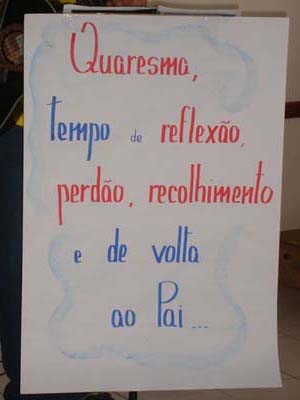 Quaresma,
tempo de reflexão,
perdão, recolhimento
e de volta
ao Pai...